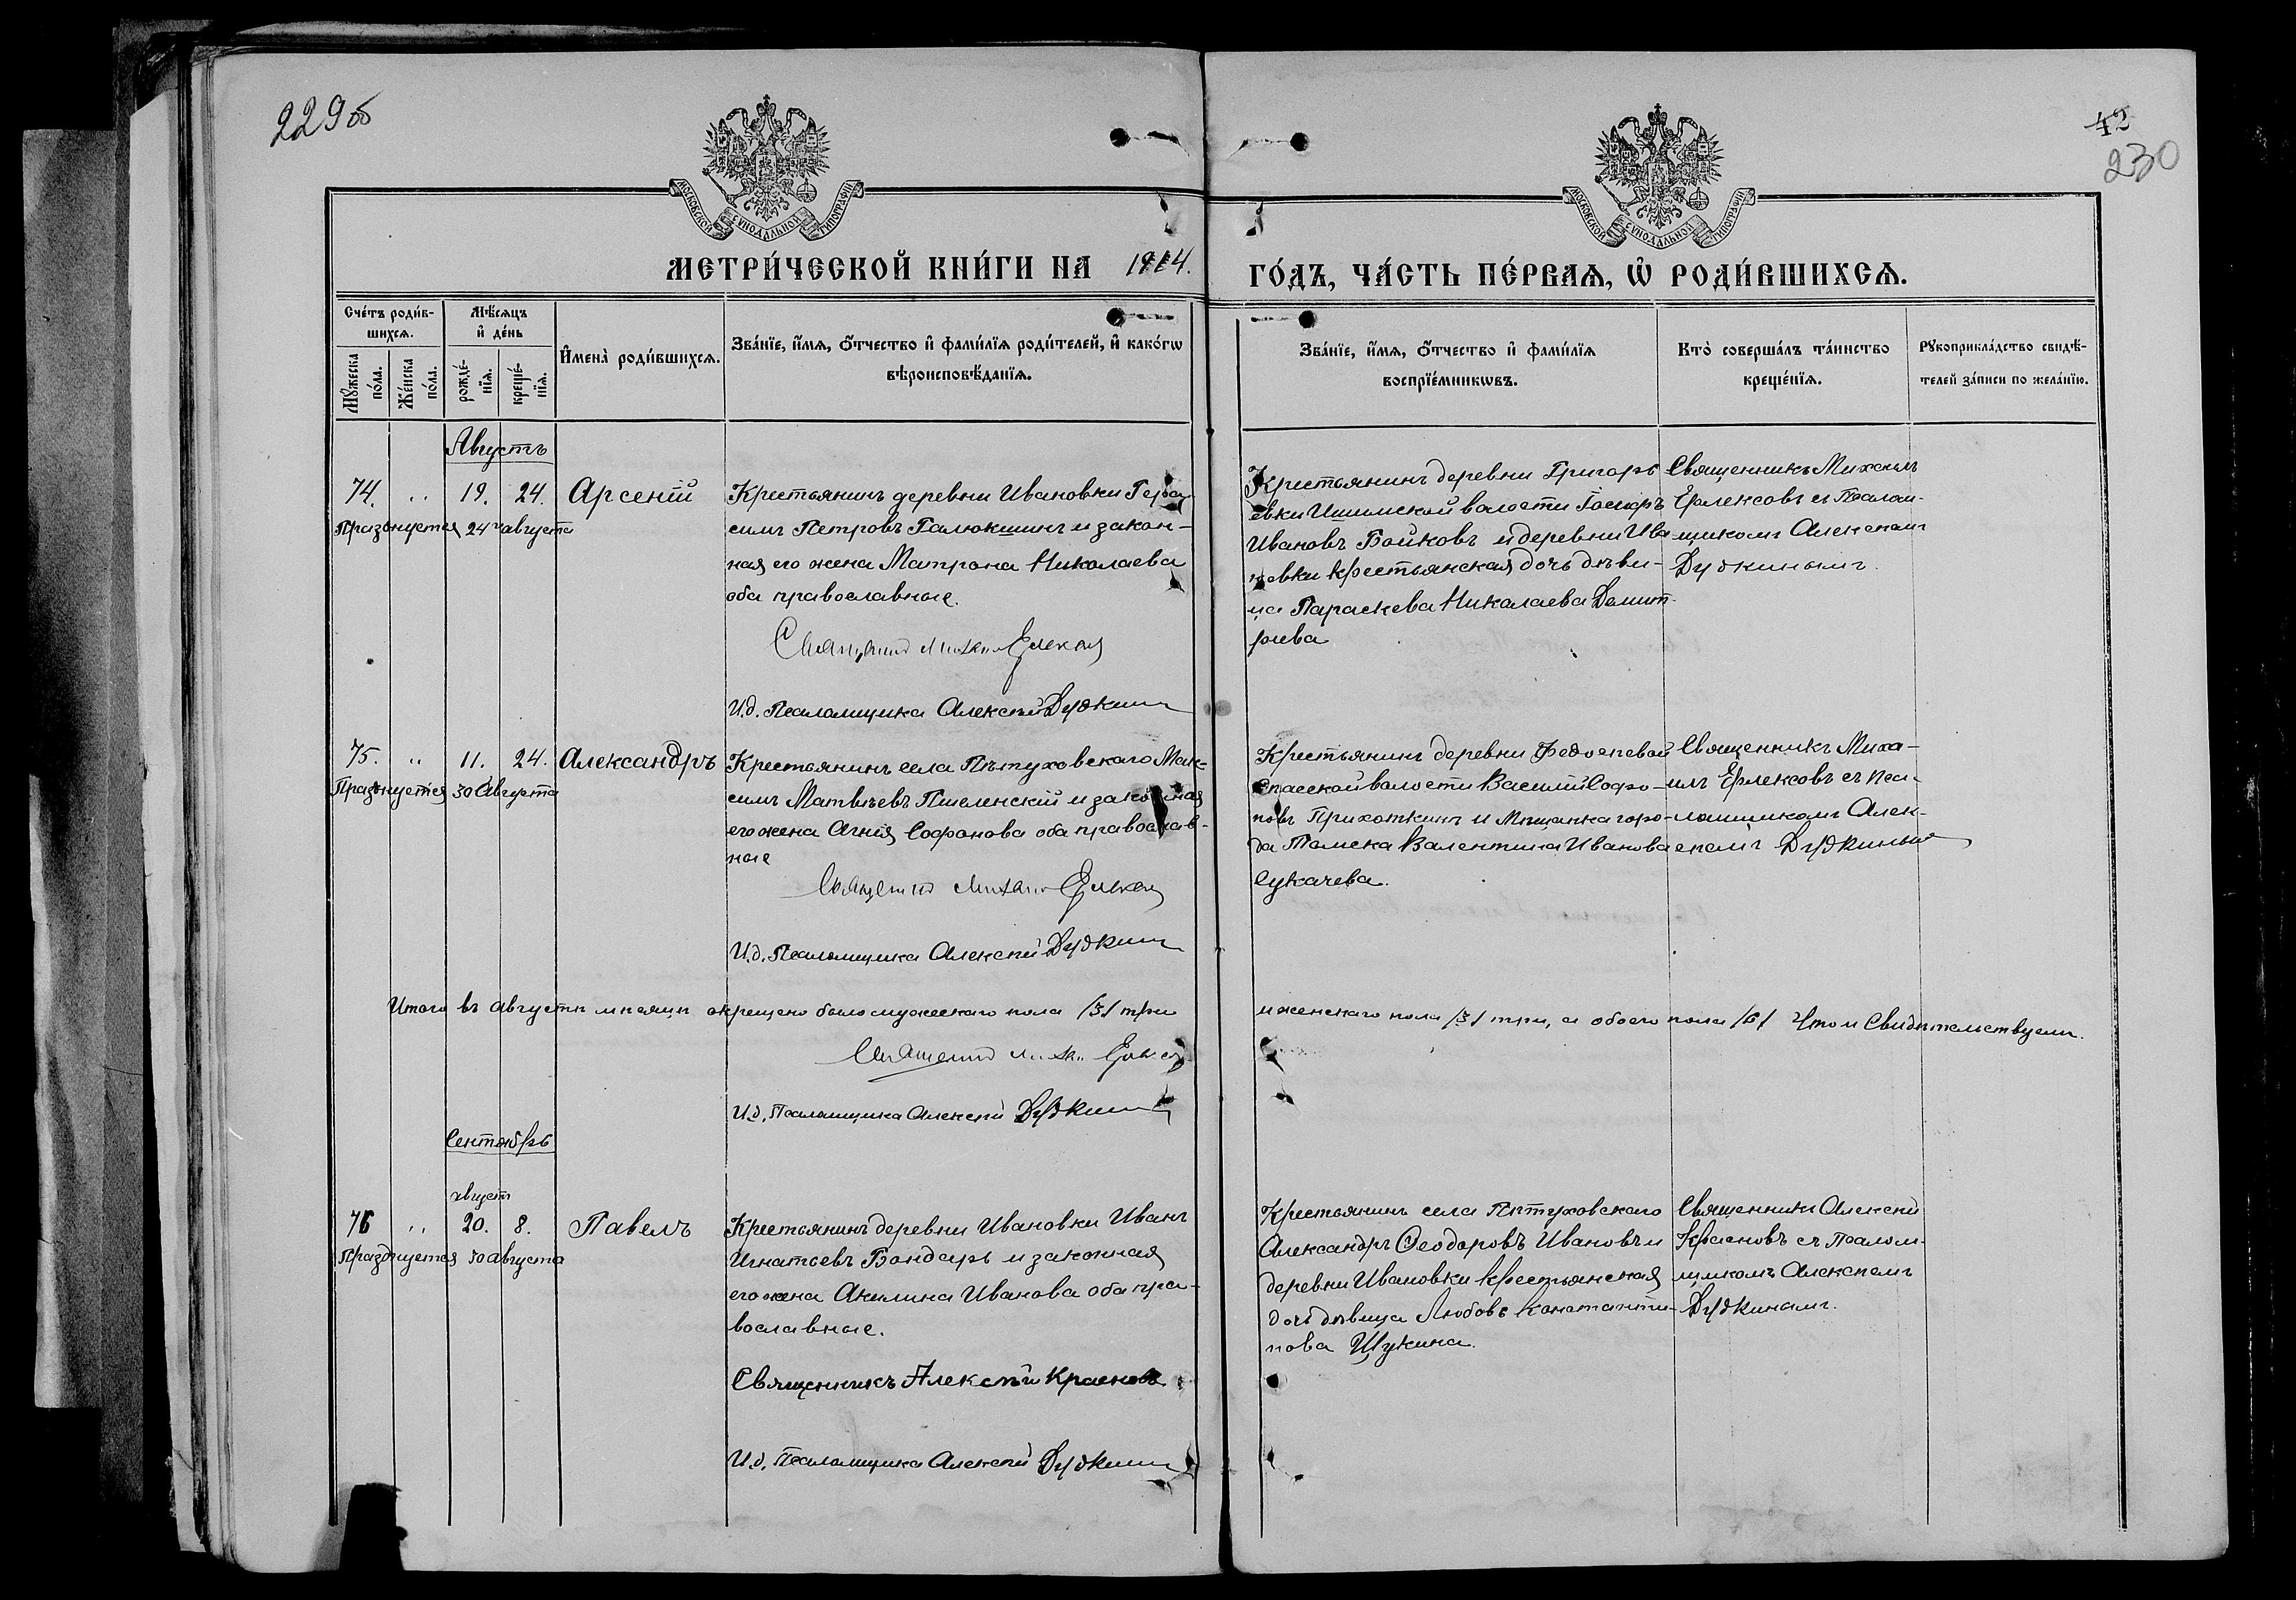 229об
42
230
МОСКОВСКОЙ СѴНОДАЛЬНОЙ ТИПОГРАФІИ
МОСКОВСКОЙ СѴНОДАЛЬНОЙ ТИПОГРАФІИ
МЕТРИ́ЧЕСКОЙ КНИ́ГИ НА 1914.
ГО́ДЪ, ЧА́СТЬ ПЕ́РВАѦ, Ѡ҆ РОДИ́ВШИХСѦ.
Сче́тъ роди́в-
шихсѧ.
Мꙋ́жеска по́ла.
Же́нска по́ла.
Мѣ́сѧцъ
и҆ де́нь
рожде́-
нїѧ.
креще́-
нїѧ.
И҆мена̀ роди́вшихсѧ.
Зва́нїе, и҆́мѧ, ѻ҆́тчество и҆ фами́лїѧ роди́телей, и҆ како́гѡ
вѣроисповѣ́данїѧ.
Зва́нїе, и҆́мѧ, ѻ҆́тчество и҆ фами́лїѧ
воспрїе́мникѡвъ.
Кто̀ соверша́лъ та́инство
креще́нїѧ.
Рꙋкоприкла́дство свидѣ́-
телей за́писи по жела́нїю.
Августъ
74. „ 19. 24. Арсеній
Празднуется 24го августа
Крестьянинъ деревни Ивановки Гера-
симъ Петровъ Галюкшинъ и закон-
ная его жена Матрона Николаева
оба православные.
Священникъ Михаилъ Ерлексовъ
И.д. Псаломщика Алексѣй Дудкинъ
Крестьянинъ деревни Григорь
евки Ишимской волости
Ивановъ Бойковъ и деревни Ива
новки крестьянская дочь дѣви-
ца Параскева Николаева Демит-
риева
Священникъ Михаилъ
Ерлексовъ съ Псалом-
щикомъ Алексѣемъ
Дудкинымъ.
75. „ 11. 24. Александръ
Празднуется 30 Августа
Крестьянинъ села Пѣтуховскаго Мак-
симъ Матвѣевъ Пшеленскій и законная
его жена Агнія Софонова оба православ-
ные
Священникъ Михаилъ Ерлексовъ
И.д. Псаломщика Алексѣй Дудкинъ
Крестьянинъ деревни Федосеевой
Спасской волости Василій Софо-
новъ Прихоткинъ и Мѣщанка горо-
да Томска Валентина Иванова
Сукачева.
Священникъ Миха-
илъ Ерлексовъ съ Пса-
ломщикомъ Алек-
сѣемъ Дудкинымъ
Итого въ августѣ мѣсяцѣ окрещено было мужескаго пола /3/ три
и женскаго пола /3/ три, а обоего пола /6/ Что и Свидѣтельствуемъ.
Священникъ Михаилъ Ерлексовъ
И.д. Псаломщика Алексѣй Дудкинъ
Сентябрь
августъ
76 „ 20. 8. Павелъ
Празднуется 30 августа
Крестьянинъ деревни Ивановки Иванъ
Игнатьевъ Бондарь и законная
его жена Акилина Иванова оба пра-
вославные.
Священникъ Алексѣй Красновъ
И.д. Псаломщика Алексѣй Дудкинъ
Крестьянинъ села Пѣтуховскаго
Александръ Ѳеодоровъ Ивановъ и
деревни Ивановки крестьянская
дочь дѣвица Любовь Константи-
нова Щукина.
Священникъ Алексѣй
Красновъ съ Псалом-
щикомъ Алексѣемъ
Дудкинымъ.